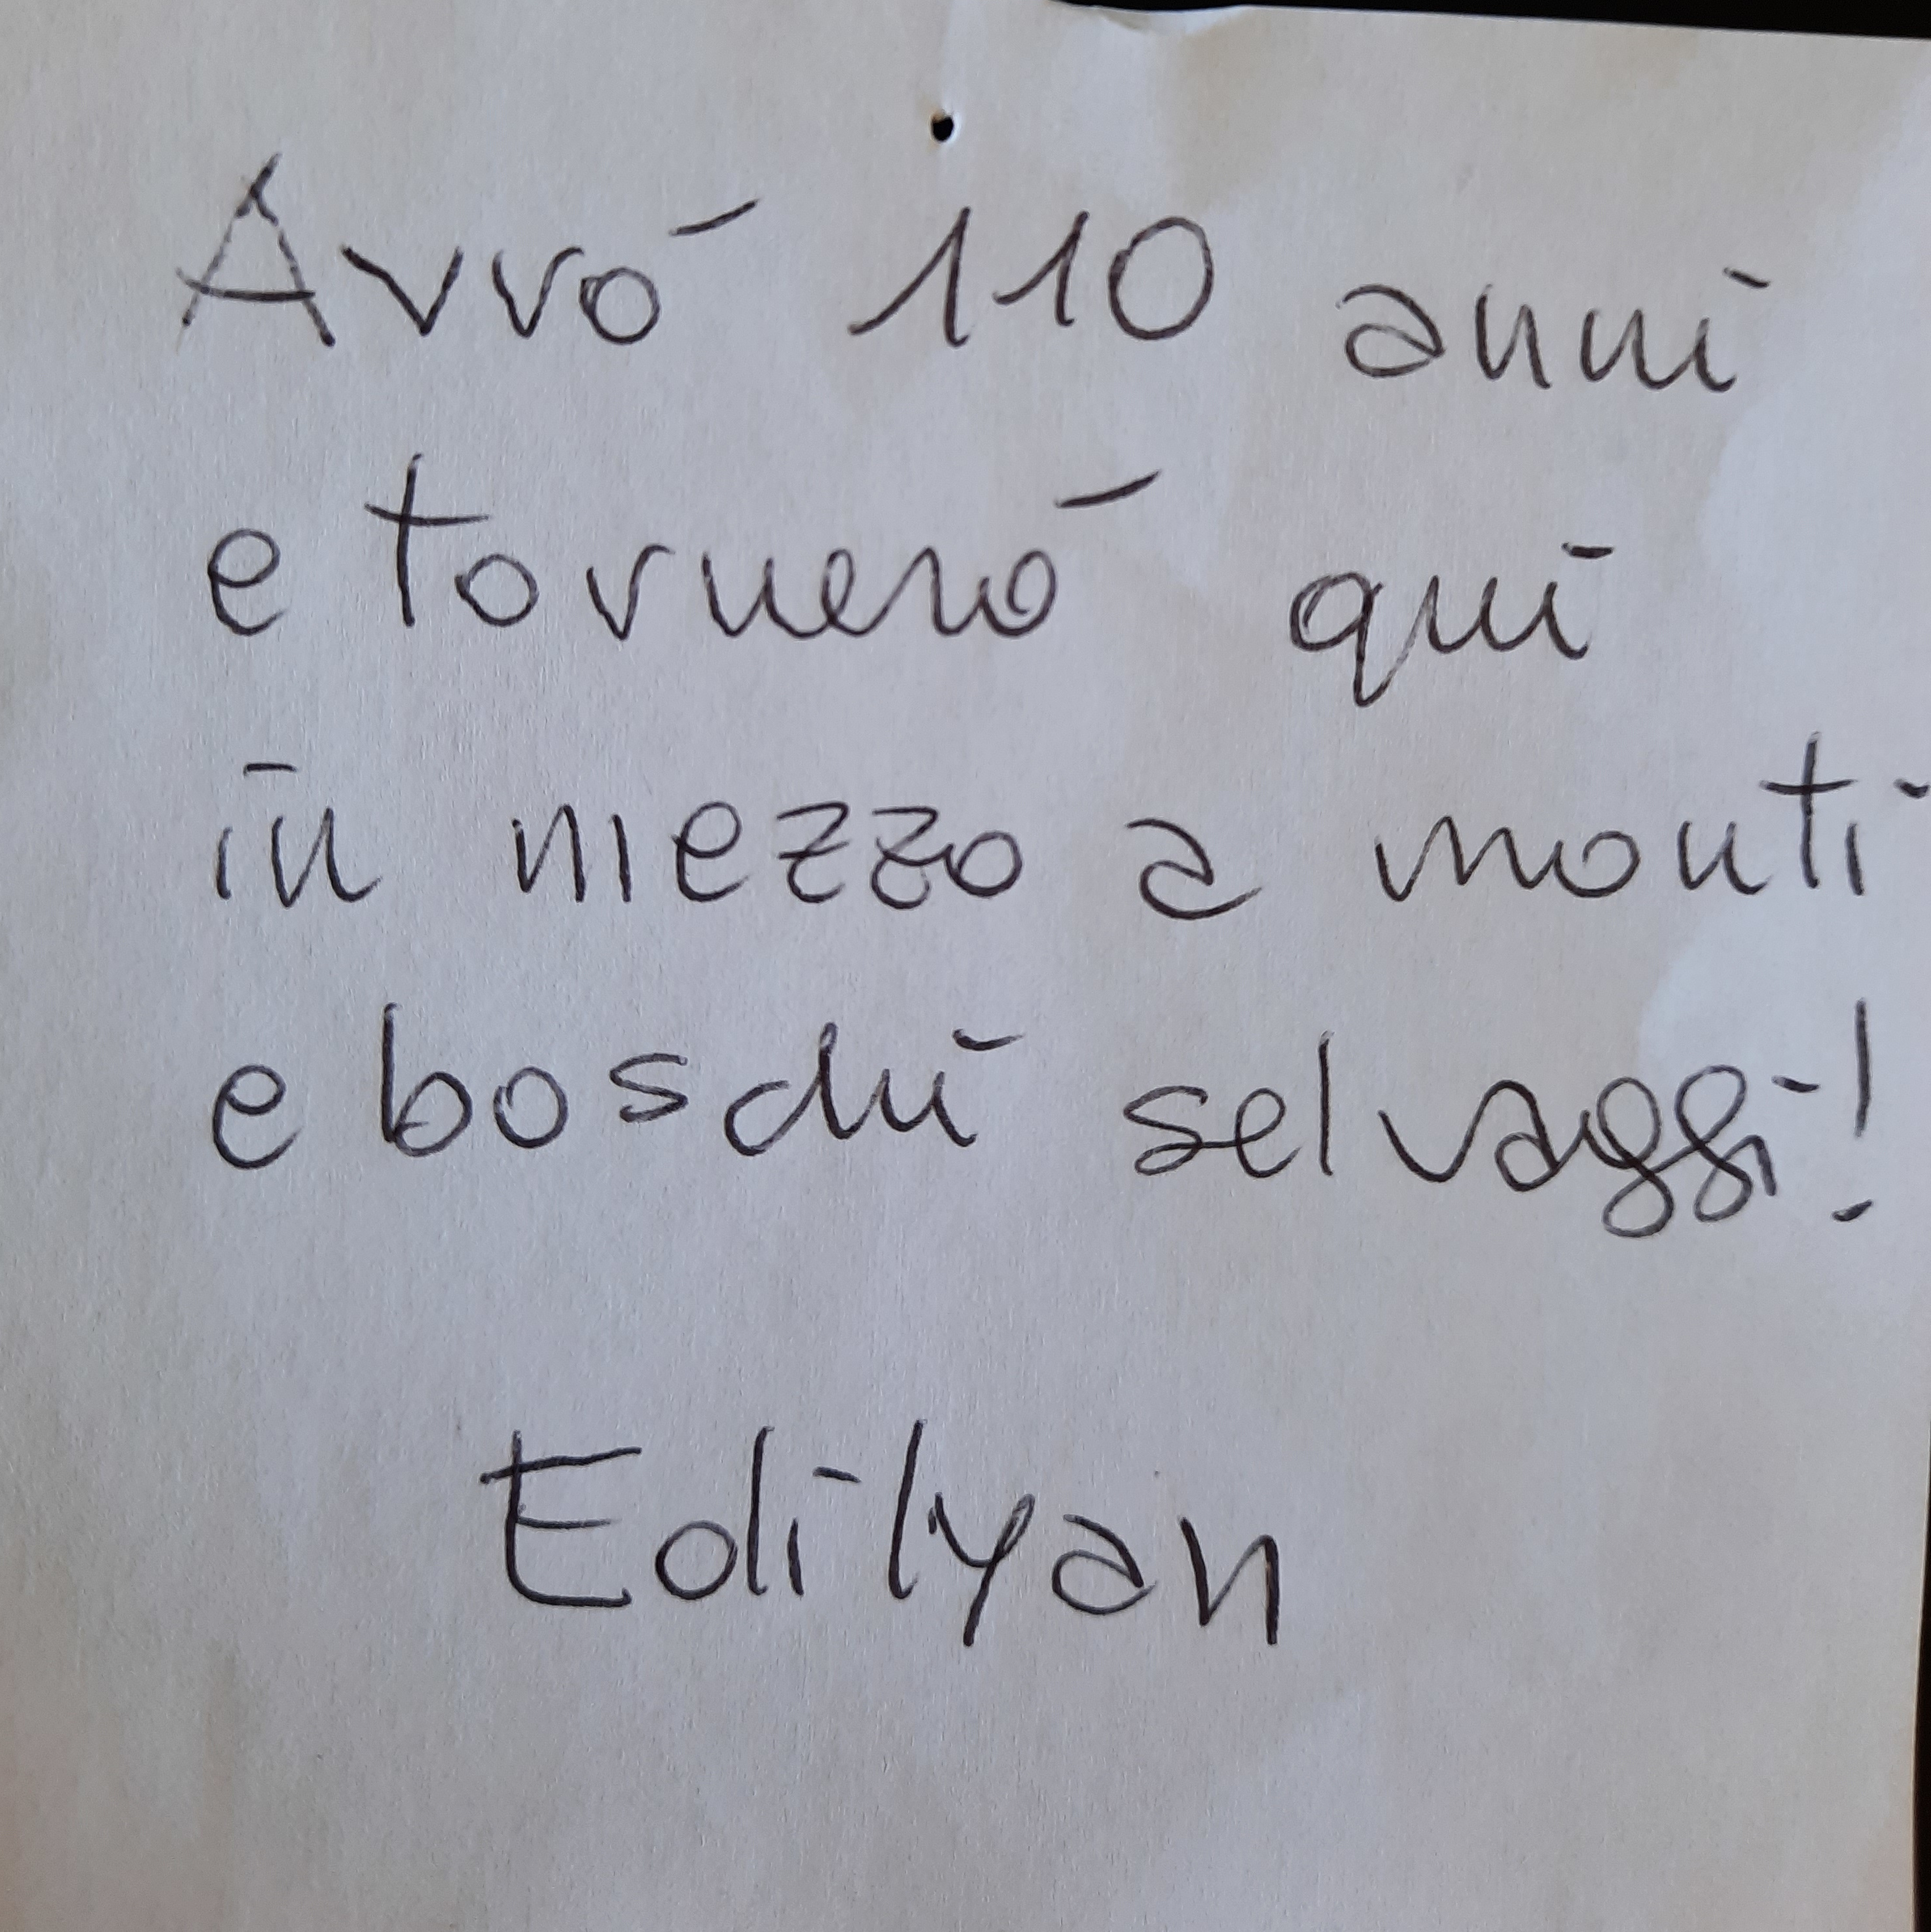 Avró 110 anni
e torneró qui
in mezzo a monti
e boschi selvaggi!
Edilyan